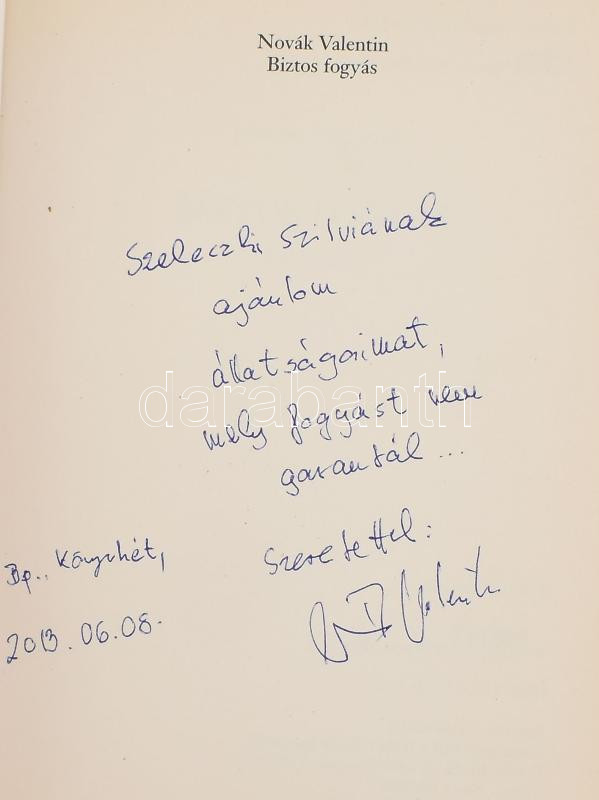 Novák Valentin
Biztos fogyás
Szeleczki Szilviának
ajánlom
állatságaimat,
darabanth
mely fogyást nem
garantál...
Szeretettel:
Bp., Könyvhét,
2013.06.08.
Valentin